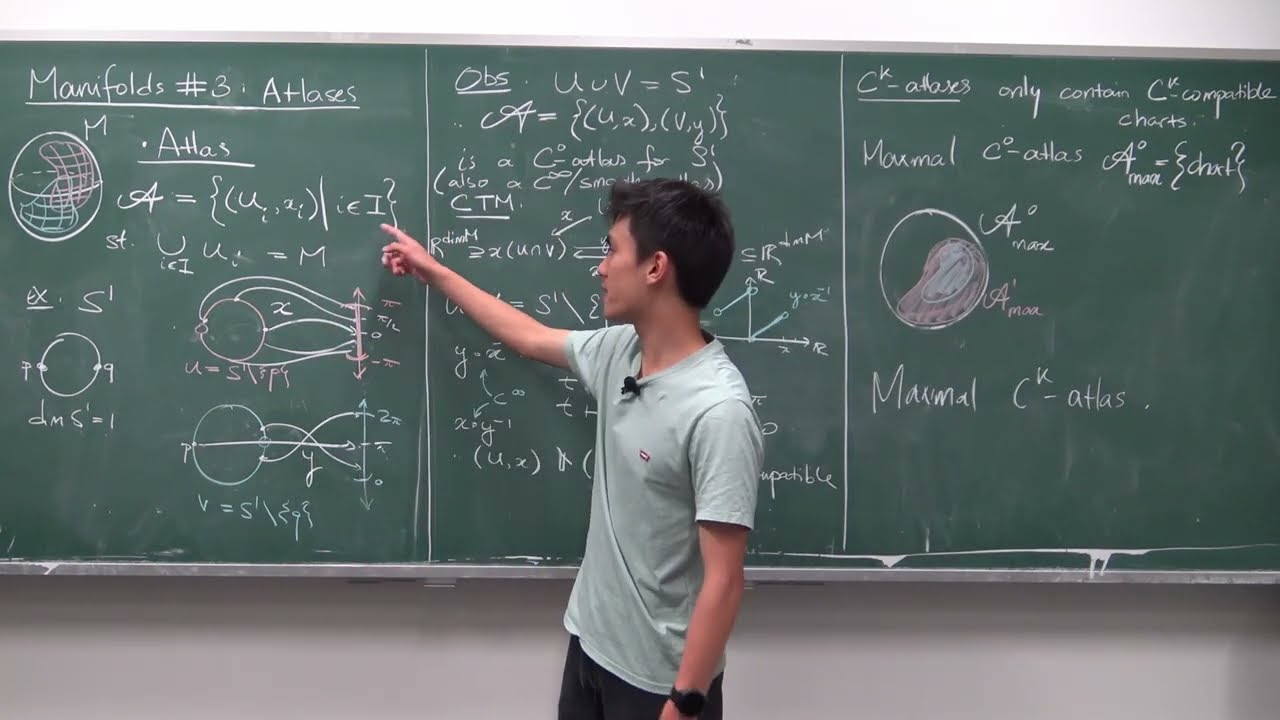 Manifolds #3: Atlases
M
· Atlas
𝒜 = {(Uᵢ, xᵢ) | i ∈ I}
st. ∪ Uᵢ = M
i∈I
ex. S¹
x
π
π/2
0
-π
U = S¹\{p}
p q
dim S¹ = 1
p
y
2π
π
0
V = S¹\{q}
Obs. U ∪ V = S¹
∴ 𝒜 = {(U, x), (V, y)}
is a C⁰-atlas for S¹
(also a C^∞/smooth
CTM.
x
ℝ^dim M ⊇ x(U∩V)
⊆ ℝ^dim M
= S¹\{
ℝ
y∘x⁻¹
π ℝ
y∘x⁻¹
C^∞
x∘y⁻¹
· (U, x)
Cᵏ-atlases only contain Cᵏ-compatible
charts.
Maximal C⁰-atlas 𝒜⁰max = {chart}
𝒜⁰max
𝒜¹max
Maximal Cᵏ-atlas.